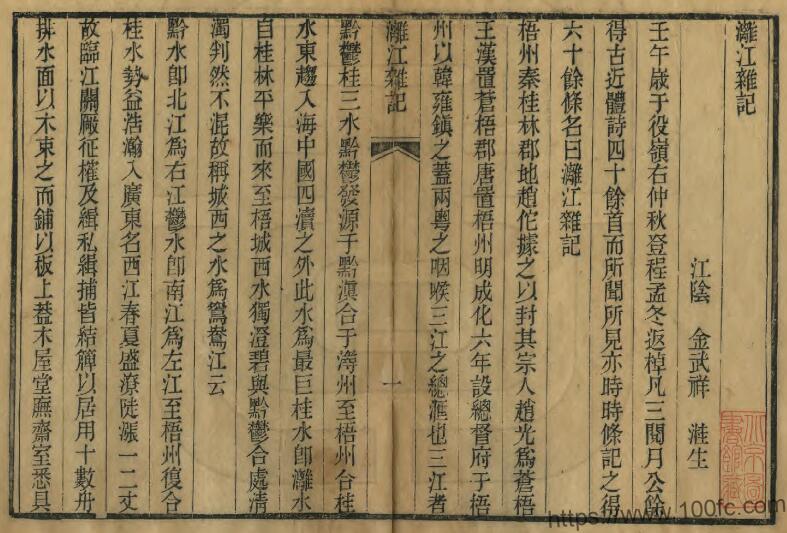 灕江雜記
江陰 金武祥 溎生
壬午歲于役嶺右仲秋登程孟冬返棹凡三閱月公餘
得古近體詩四十餘首而所聞所見亦時時條記之得
六十餘條名曰灕江雜記
梧州秦桂林郡地趙佗據之以封其宗人趙光爲蒼梧
王漢置蒼梧郡唐置梧州明成化六年設總督府于梧
州以韓雍鎮之蓋兩粵之咽喉三江之總滙也三江者
灕江雜記
一
黔鬱桂三水黔鬱發源于黔滇合于潯州至梧州合桂
水東趨入海中國四瀆之外此水爲最巨桂水卽灕水
自桂林平樂而來至梧城西水獨澄碧與黔鬱合處清
濁判然不混故稱城西之水爲鴛鴦江云
黔水卽北江爲右江鬱水卽南江爲左江至梧州復合
桂水勢益浩瀚入廣東名西江春夏盛潦陡漲一二丈
故臨江關廠征榷及緝私緝捕皆結簰以居用十數舟
排水面以木束之而鋪以板上葢木屋堂廡齋室悉具
https://www.100fc.com